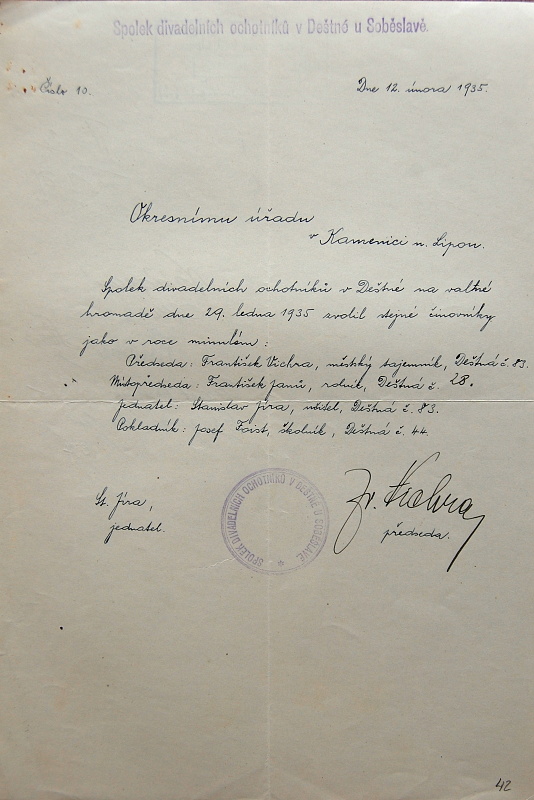 Spolek divadelních ochotníků v Deštné u Soběslavě.
Číslo 10.
Dne 12. února 1935.
Okresnímu úřadu
v Kamenici n. Lipou.
Spolek divadelních ochotníků v Deštné na valné
hromadě dne 29. ledna 1935 zvolil stejné činovníky
jako v roce minulém:
Předseda: František Vichra, městský tajemník, Deštná č. 83.
Místopředseda: František Janů, rolník, Deštná č. 28.
Jednatel: Stanislav Jíra, učitel, Deštná č. 83.
Pokladník: Josef Faist, školník, Deštná č. 44.
St. Jíra,
jednatel.
SPOLEK DIVADELNÍCH OCHOTNÍKŮ V DEŠTNÉ U SOBĚSLAVĚ.
Fr. Vichra
předseda.
42